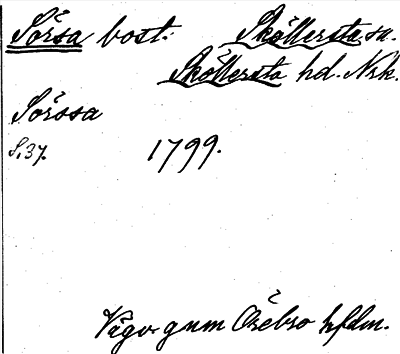 Sörsa bost. Sköllersta sn.
Sköllersta hd. Nrk.
Sörssa
S. 37. 1799.
Vägar gnm Örebro hfdm.